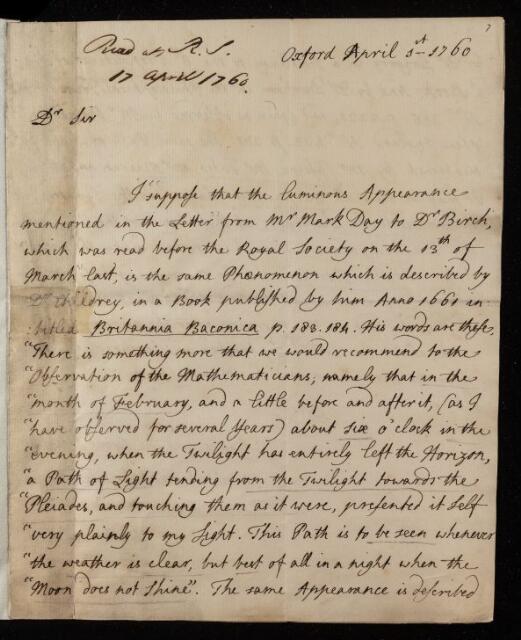 7
Read at R. S.
17 April 1760.
Oxford April 1st 1760
Dr Sir
I suppose that the luminous Appearance
mentioned in the Letter from Mr Mark Day to Dr Birch,
which was read before the Royal Society on the 13th of
March last, is the same Phænomenon which is described by
Dr Childrey, in a Book published by him Anno 1661 in
:titled Britannia Baconica p. 183. 184. His words are these,
"There is something more that we would recommend to the
"Observation of the Mathematicians; namely that in the
"month of February, and a little before and after it, (as I
"have observed for several Years) about six o'clock in the
"evening, when the Twilight has entirely left the Horizon,
"a Path of Light tending from the Twilight towards the
"Pleiades, and touching them as it were, presented it self
"very plainly to my Sight. This Path is to be seen whenever
"the weather is clear, but best of all in a night when the
"Moon does not Shine". The same Appearance is described